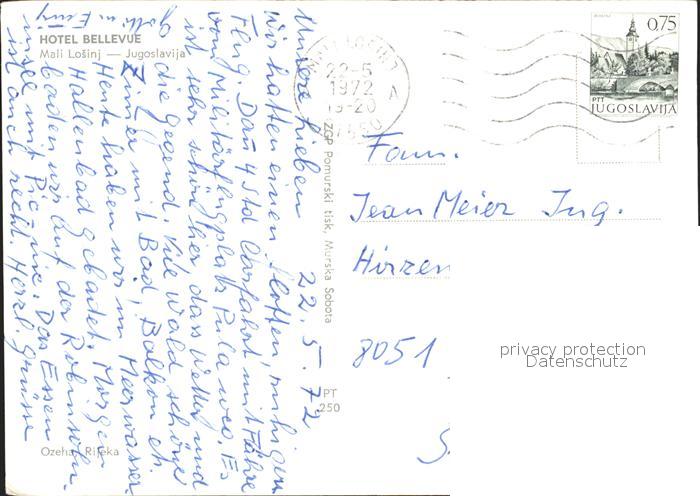 HOTEL BELLEVUE
Mali Lošinj — Jugoslavija
22. 5. 72
Meine Lieben
Wir hatten einen flotten, ruhigen
Flug. Dann 4 Std Carfahrt mit Fähre
vom Militärflugplatz Pula weg. Es
ist sehr schön hier das Wetter und
die Gegend. Viele Wald schöne
Zimmer mit Bad, Balkon etc.
Heute haben wir im Meerwasser
Hallenbad gebadet. Morgen
baden wir auf der Robinson-
insel mit Picknic. Das Essen
ist auch recht. Herzl. Grüsse
Ozeha, Rijeka
ZGP Pomurski tisk, Murska Sobota
PT
250
MALI LOŠINJ
22-5
1972
19-20
A
0,75
PTT
JUGOSLAVIJA
Fam.
Jean Meier Ing.
Hirzen
8051
privacy protection
Datenschutz